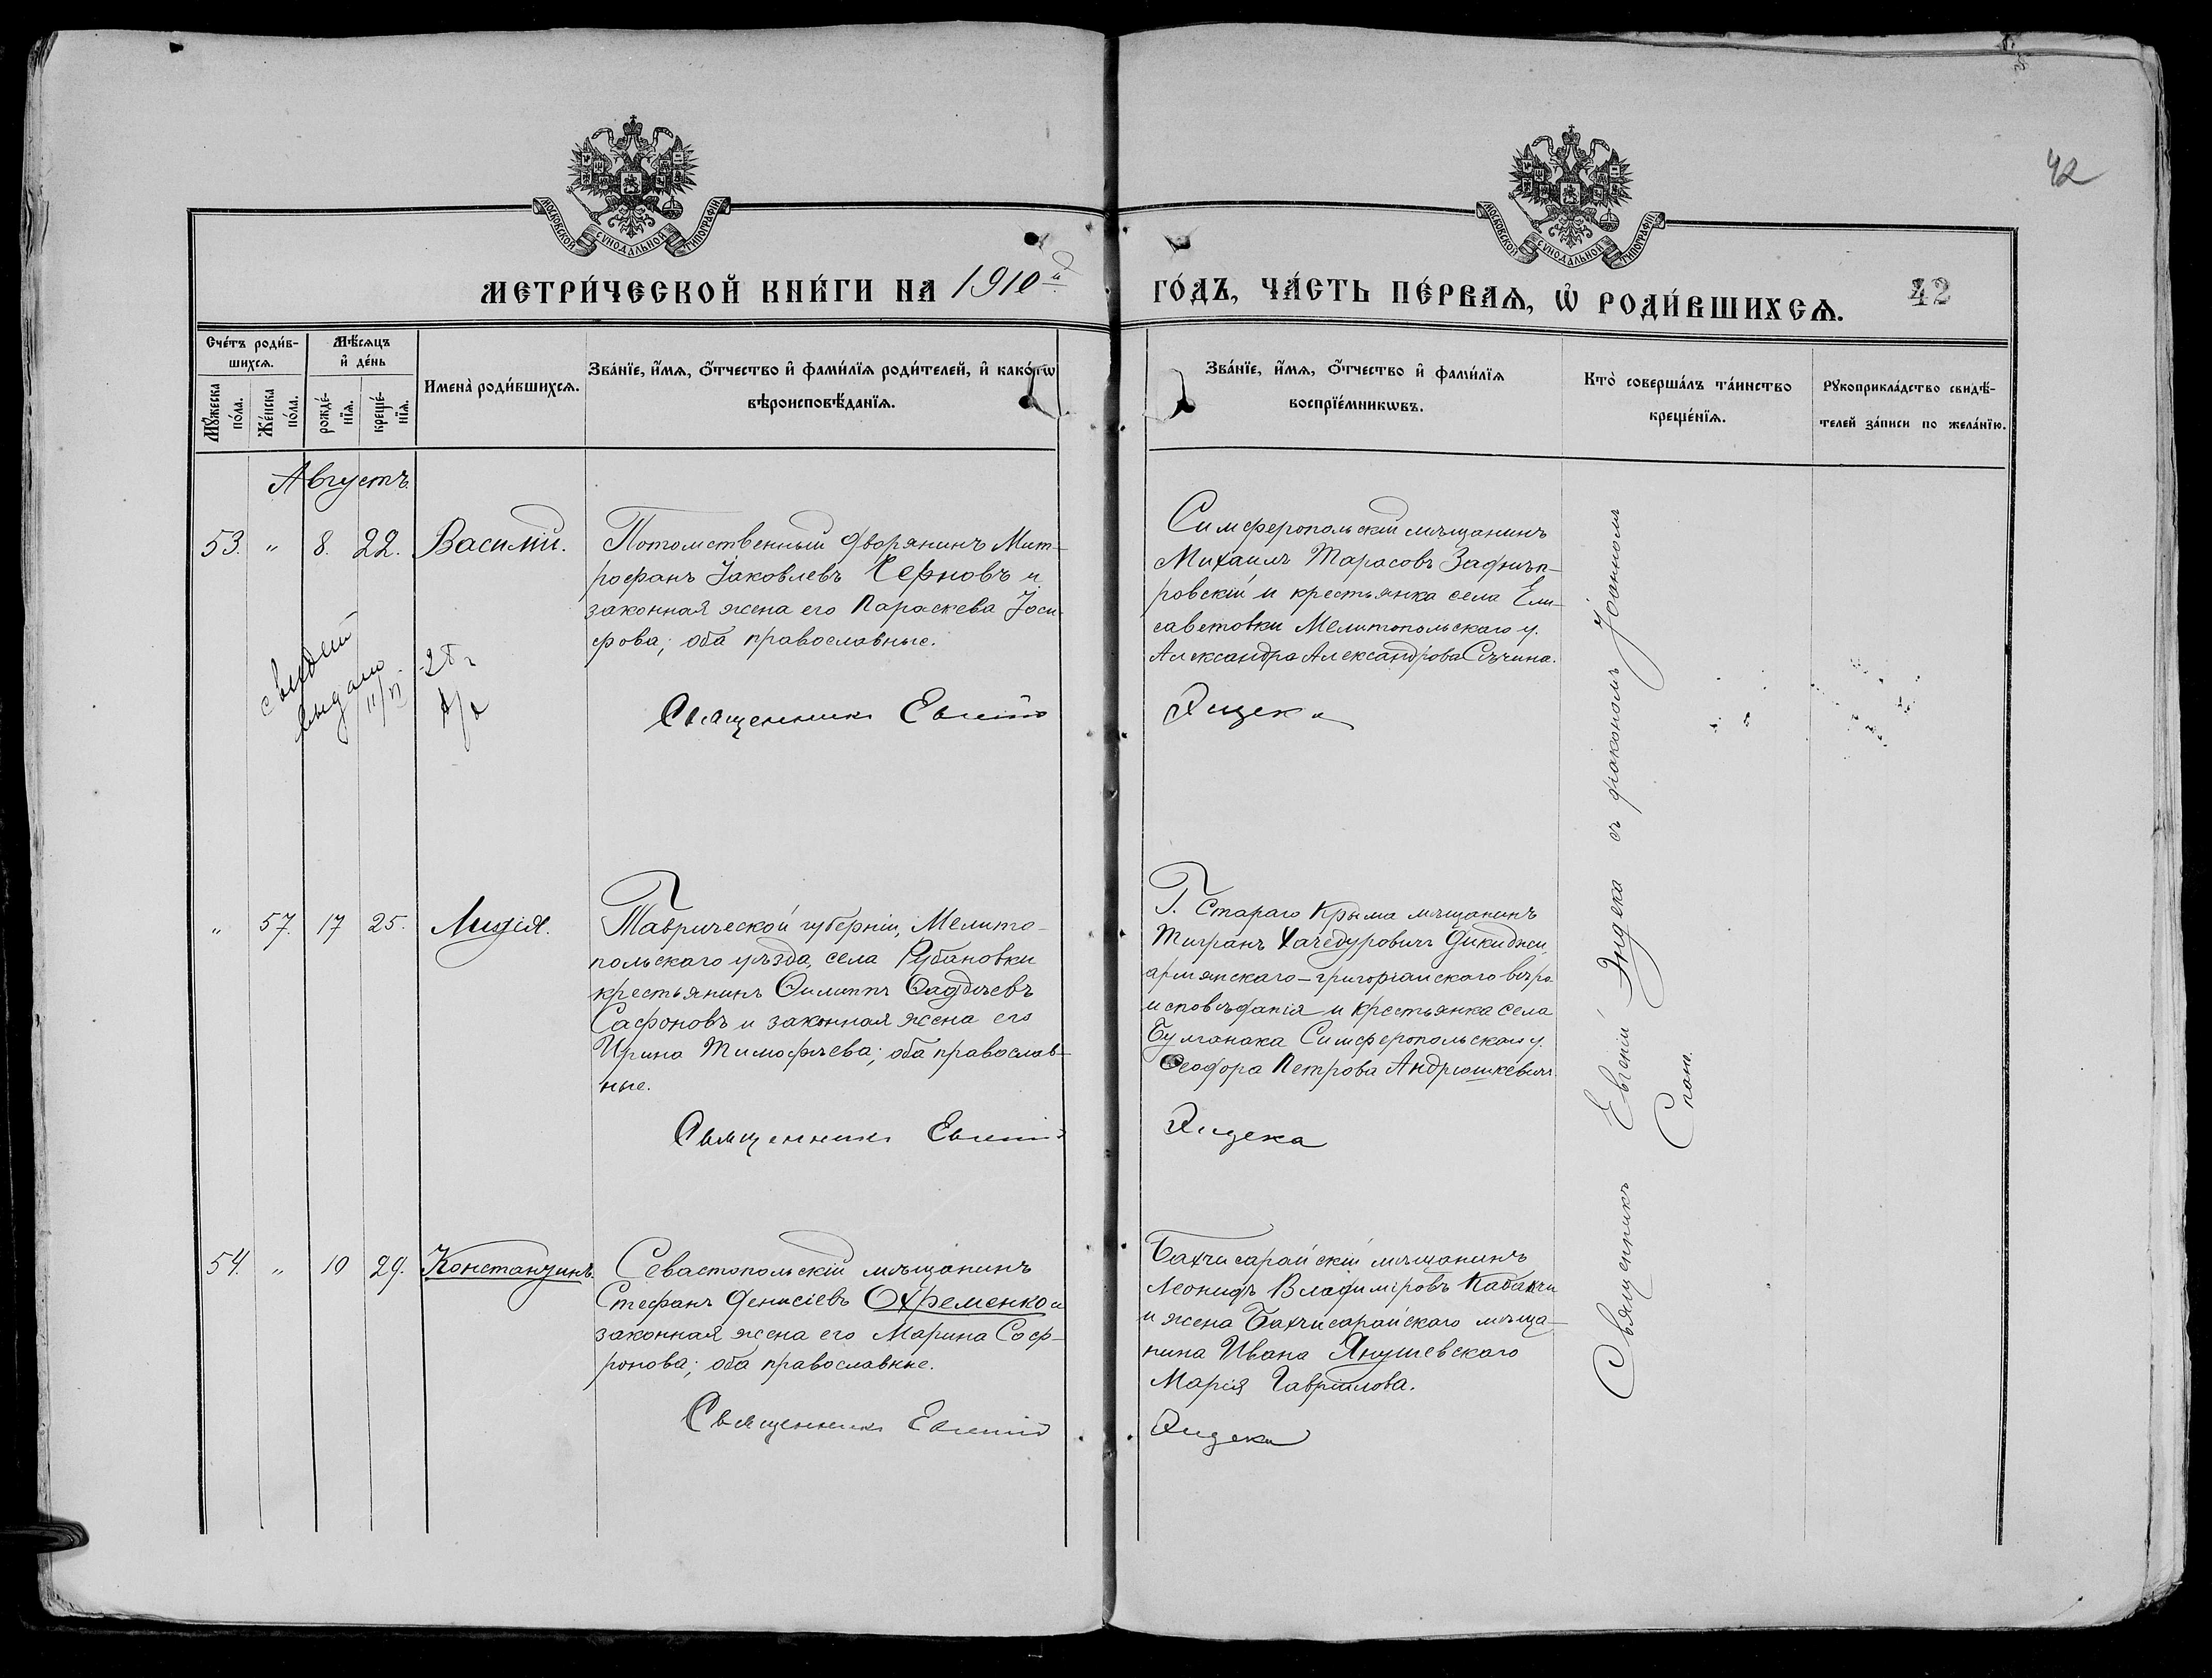 42
МОСКОВСКОЙ СѴНОДАЛЬНОЙ ТИПОГРАФІИ
МОСКОВСКОЙ СѴНОДАЛЬНОЙ ТИПОГРАФІИ
МЕТРИ́ЧЕСКОЙ КНИ́ГИ НА 1910й
ГО́ДЪ, ЧА́СТЬ ПЕ́РВАѦ, Ѡ҆ РОДИ́ВШИХСѦ.
42
Сче́тъ роди́в-
шихсѧ.
Мꙋ́жеска
по́ла.
Же́нска
по́ла.
Мѣ́сѧцъ
и҆ де́нь
рожде́-
нїѧ.
креще́-
нїѧ.
И҆мена̀ роди́вшихсѧ.
Зва́нїе, и҆́мѧ, ѻ҆́тчество и҆ фами́лїѧ роди́телей, и҆ како́гѡ
вѣроисповѣ́данїѧ.
Зва́нїе, и҆́мѧ, ѻ҆́тчество и҆ фами́лїѧ
воспрїе́мникѡвъ.
Кто̀ соверша́лъ та́инство
креще́нїѧ.
Рꙋкоприкла́дство свидѣ́-
телей за́писи по жела́нїю.
Августъ
53. " 8. 22. Василій.
Потомственный дворянинъ Мит-
рофанъ Іаковлевъ Черновъ и
законная жена его Параскева Іоси-
фова; оба православные.
Священникъ Евгеній
Симферопольскій мѣщанинъ
Михаилъ Тарасовъ Заднѣп-
ровскій и крестьянка села Ели-
саветовки Мелитопольскаго у.
Александра Александрова Сѣчина.
Эндека
выдано
" 57. 17 25. Лидія.
Таврической губерніи, Мелито-
польскаго уѣзда, села Рубановки
крестьянинъ Ѳилиппъ Ѳаддѣевъ
Сафоновъ и законная жена его
Ирина Тимофѣева; оба православ-
ные.
Священникъ Евгеній
Г. Стараго Крыма мѣщанинъ
Тигранъ Хачедуровичъ Дикиджи
армянскаго-григоріанскаго вѣро
исповѣданія и крестьянка села
Булганака Симферопольскаго у.
Ѳеодора Петрова Андрюшкевичъ
Эндека
54. " 10 29. Константинъ.
Севастопольскій мѣщанинъ
Стефанъ Денисіевъ Охременко и
законная жена его Марина Соф-
ронова; оба православные.
Священникъ Евгеній
Бахчисарайскій мѣщанинъ
Леонидъ Владиміровъ Кабакчи
и жена Бахчисарайскаго мѣща-
нина Ивана Янушевскаго
Марія Гавріилова.
Эндека
Священникъ Евгеній Эндека съ діакономъ Іоанномъ